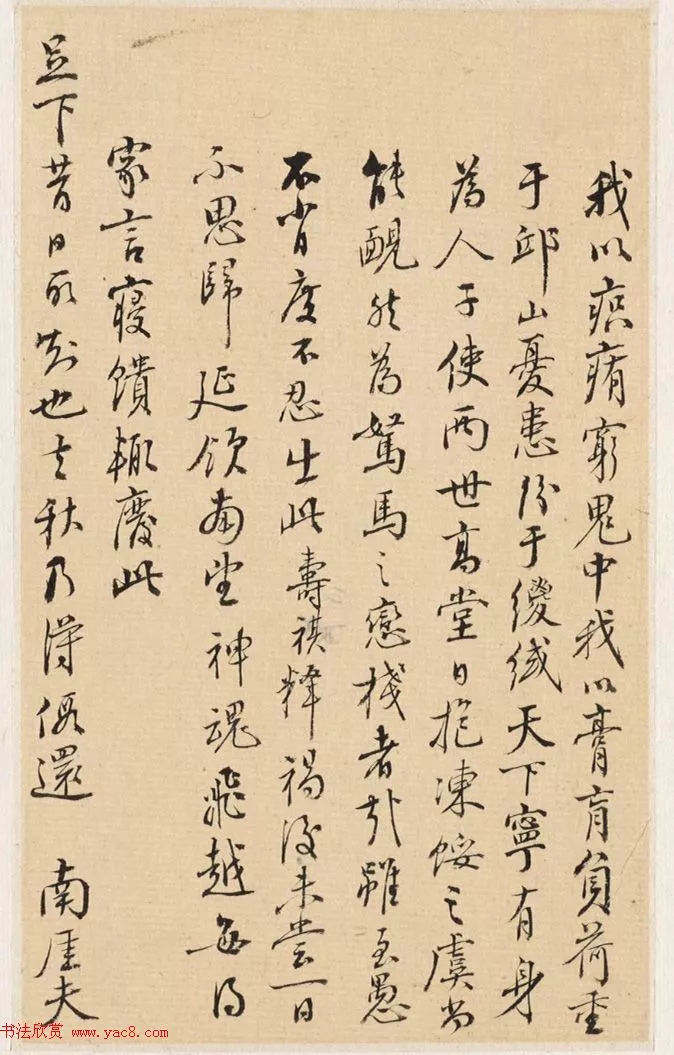 我以痁痏窮鬼中我以膏肓負荷重
于邱山憂患係于纓絨天下寧有身
為人子使兩世高堂日抱凍餒之虞尚
能靦然為駑馬之戀棧者哉雖至愚
不肖度不忍出此壽祺釋褐後未嘗一日
不思歸延領南望神魂飛越每得
家言寢饋輒廢此
足下昔日所知也去秋乃得假還
南厓夫
书法欣赏 www.yac8.com